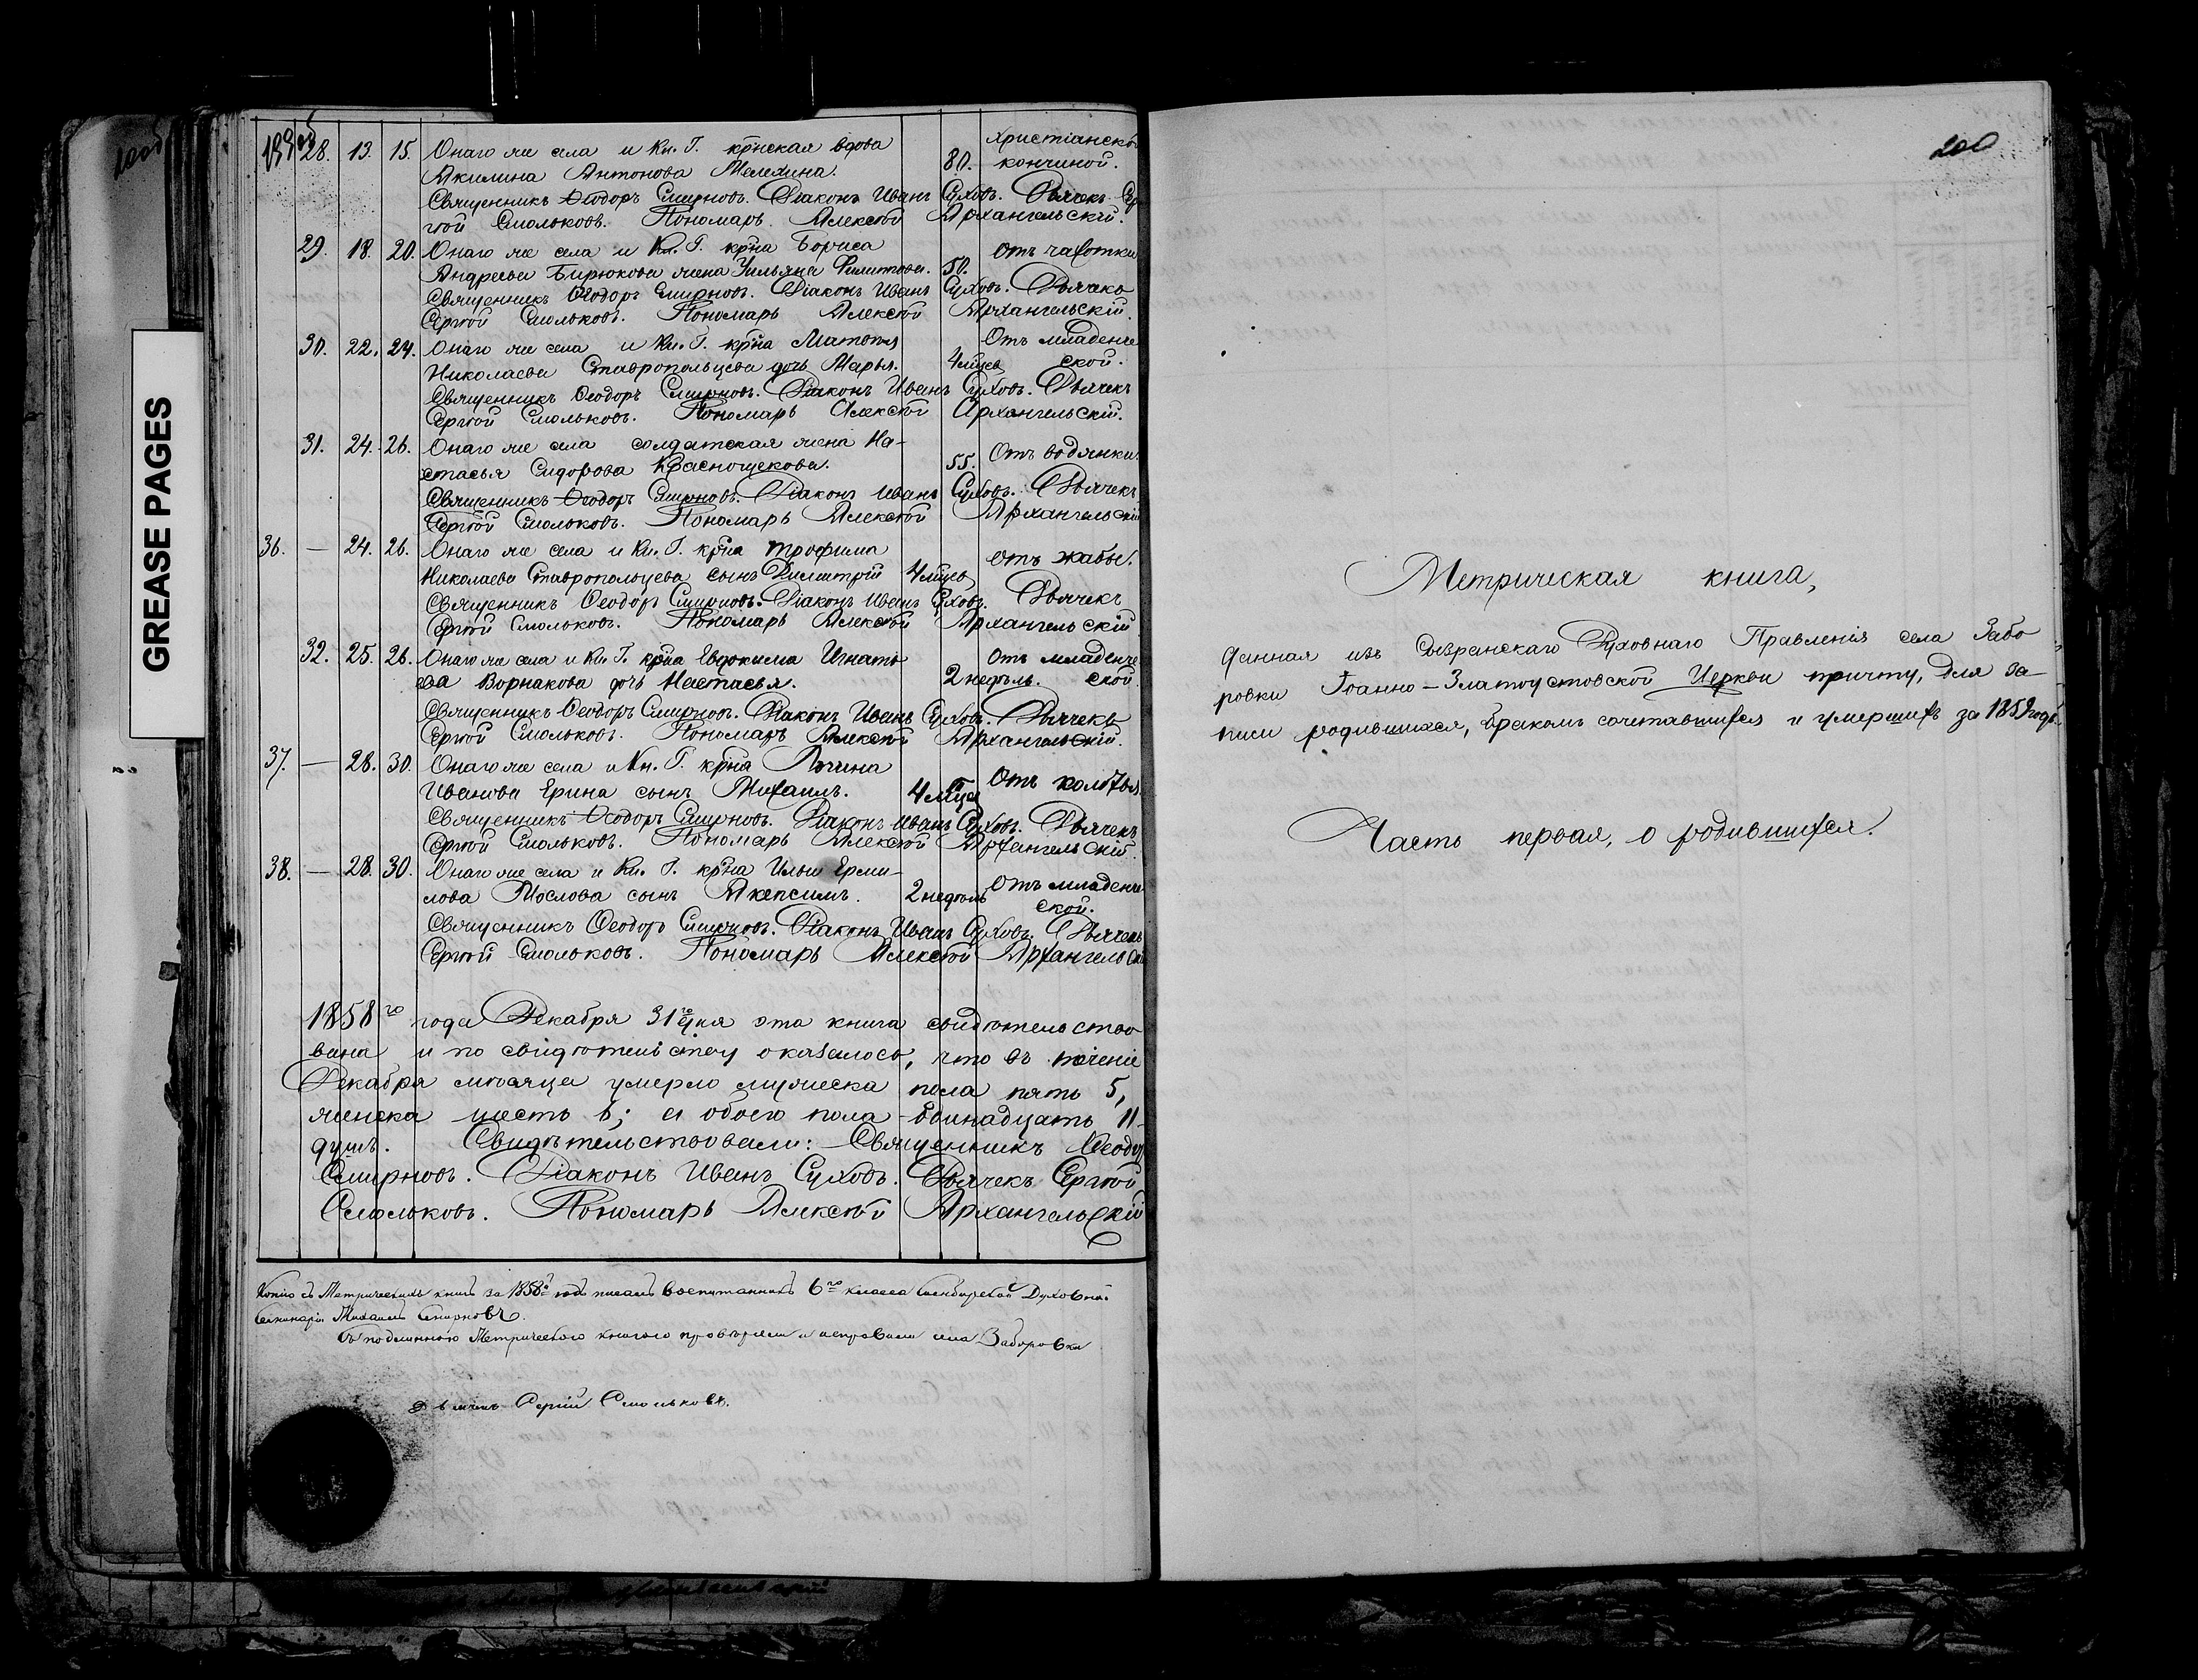 199об
28. 13. 15. Онаго же села и Кн. Г. крнская вдова 80. христіанской
Акилина Антонова Мелехина. кончиной.
Священникъ Ѳеодоръ Смирновъ. Діаконъ Иванъ Суховъ. Дьячекъ Сер
гѣй Смольковъ. Пономарь Алексѣй Архангельскій.
29. 18. 20. Онаго же села и Кн. Г. крна Бориса отъ чахотки
Андреева Бирюкова жена Ульяна Филипова. 50.
Священникъ Ѳеодоръ Смирновъ. Діаконъ Иванъ Суховъ. Дьячекъ
Сергѣй Смольковъ. Пономарь Алексѣй Архангельскій.
30. 22. 24. Онаго же села и Кн. Г. крна Матвѣя Отъ младенче
Николаева Ставропольцева дочь Марья. 4 мцев ской.
Священникъ Ѳеодоръ Смирновъ. Діаконъ Иванъ Суховъ. Дьячекъ
Сергѣй Смольковъ. Пономарь Алексѣй Архангельскій.
31. 24. 26. Онаго же села солдатская жена На-
стасья Сидорова Краснощекова. 55. Отъ водянки.
Священникъ Ѳеодоръ Смирновъ. Діаконъ Иванъ Суховъ. Дьячекъ
Сергѣй Смольковъ. Пономарь Алексѣй Архангельскій
36. — 24. 26. Онаго же села и Кн. Г. крна Трофима отъ жабы.
Николаева Ставропольцева сынъ Димитрій 4 мцев
Священникъ Ѳеодоръ Смирновъ. Діаконъ Иванъ Суховъ. Дьячекъ
Сергѣй Смольковъ. Пономарь Алексѣй Архангельскій
32. 25. 26. Онаго же села и Кн. Г. крна Евдокима Игнать Отъ младенче
ева Ворнакова дочь Настасья. 2 недѣль. ской
Священникъ Ѳеодоръ Смирновъ. Діаконъ Иванъ Суховъ. Дьячекъ
Сергѣй Смольковъ. Пономарь Алексѣй Архангельскій.
37. — 28. 30. Онаго же села и Кн. Г. крна
Иванова Ерина сынъ Михаилъ. 4 мца Отъ колотья.
Священникъ Ѳеодоръ Смирновъ. Діаконъ Иванъ Суховъ. Дьячекъ
Сергѣй Смольковъ. Пономарь Алексѣй Архангельскій.
38. — 28. 30. Онаго же села и Кн. Г. крна Ильи Ерми-
лова Маслова сынъ Акепсимъ. 2 недѣль Отъ младенче
ской.
Священникъ Ѳеодоръ Смирновъ. Діаконъ Иванъ Суховъ. Дьячекъ
Сергѣй Смольковъ. Пономарь Алексѣй Архангельскій
1858го года Декабря 31го дня эта книга свидѣтельство
вана и по свидѣтельству оказалось, что въ теченіе
Декабря мѣсяца умерло мужеска пола пять 5,
женска шесть 6; а обоего пола одинадцать 11
душъ. Свидѣтельствовали: Священникъ Ѳеодоръ
Смирновъ. Діаконъ Иванъ Суховъ. Дьячекъ Сергѣй
Смольковъ. Пономарь Алексѣй Архангельскій
Копію съ Метрическихъ книгъ за 1858й годъ писалъ воспитанникъ 6го класса Симбирской Духовной
Семинаріи Михаилъ Смирновъ.
Съ подлинною Метрическою книгою провѣряли и исправили села Заборовки
Дьячекъ Сергій Смольковъ.
GREASE PAGES
200
Метрическая книга,
данная изъ Сызранскаго Духовнаго Правленія села Забо
ровки Іоанно-Златоустовской Церкви причту, для за-
писи родившихся, бракомъ сочетавшихся и умершихъ за 1859 годъ.
Часть первая, о родившихся.